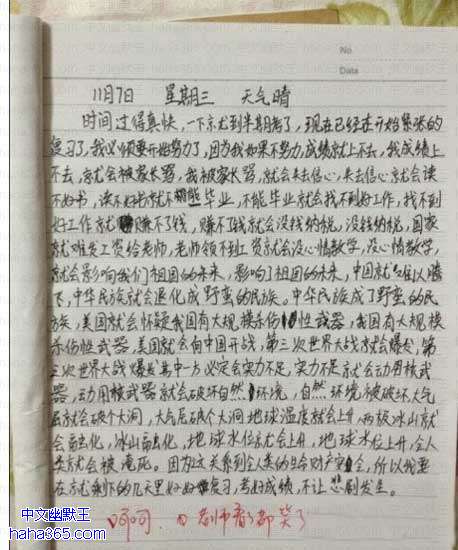 No
Date
11月7日 星期三 天气晴
时间过得真快,一下就到半期考了,现在已经在开始紧张的
复习了,我必须要开始努力了,因为我如果不努力,成绩就上不去,我成绩上
不去,就会被家长骂,我被家长骂,就会失去信心,失去信心就会读
不好书,读不好书就不能毕业,不能毕业就会找不到好工作,找不到
好工作就赚不了钱,赚不了钱就会没钱纳税,没钱纳税,国家
就难发工资给老师,老师领不到工资就会没心情教学,没心情教学,
就会影响我们祖国的未来,影响了祖国的未来,中国就难以腾
飞,中华民族就会退化成野蛮的民族。中华民族成了野蛮的民
族,美国就会怀疑我国有大规模杀伤性武器,我国有大规模
杀伤性武器,美国就会向中国开战,第三次世界大战就会爆发,第
三次世界大战爆发其中一方必定会实力不足,实力不足就会动用核武
器,动用核武器就会破坏自然环境,自然环境被破坏,大气
层就会破个大洞,大气层破个大洞地球温度就会上升,两极冰山就
会融化,冰山融化,地球水位就会上升,地球水位上升,全人
类就会被淹死。因为这关系到全人类的生命财产安全,所以我要
在就剩下的几天里好好复习,考好成绩,不让悲剧发生。
呵呵
都笑了
中文幽默王
haha365.com